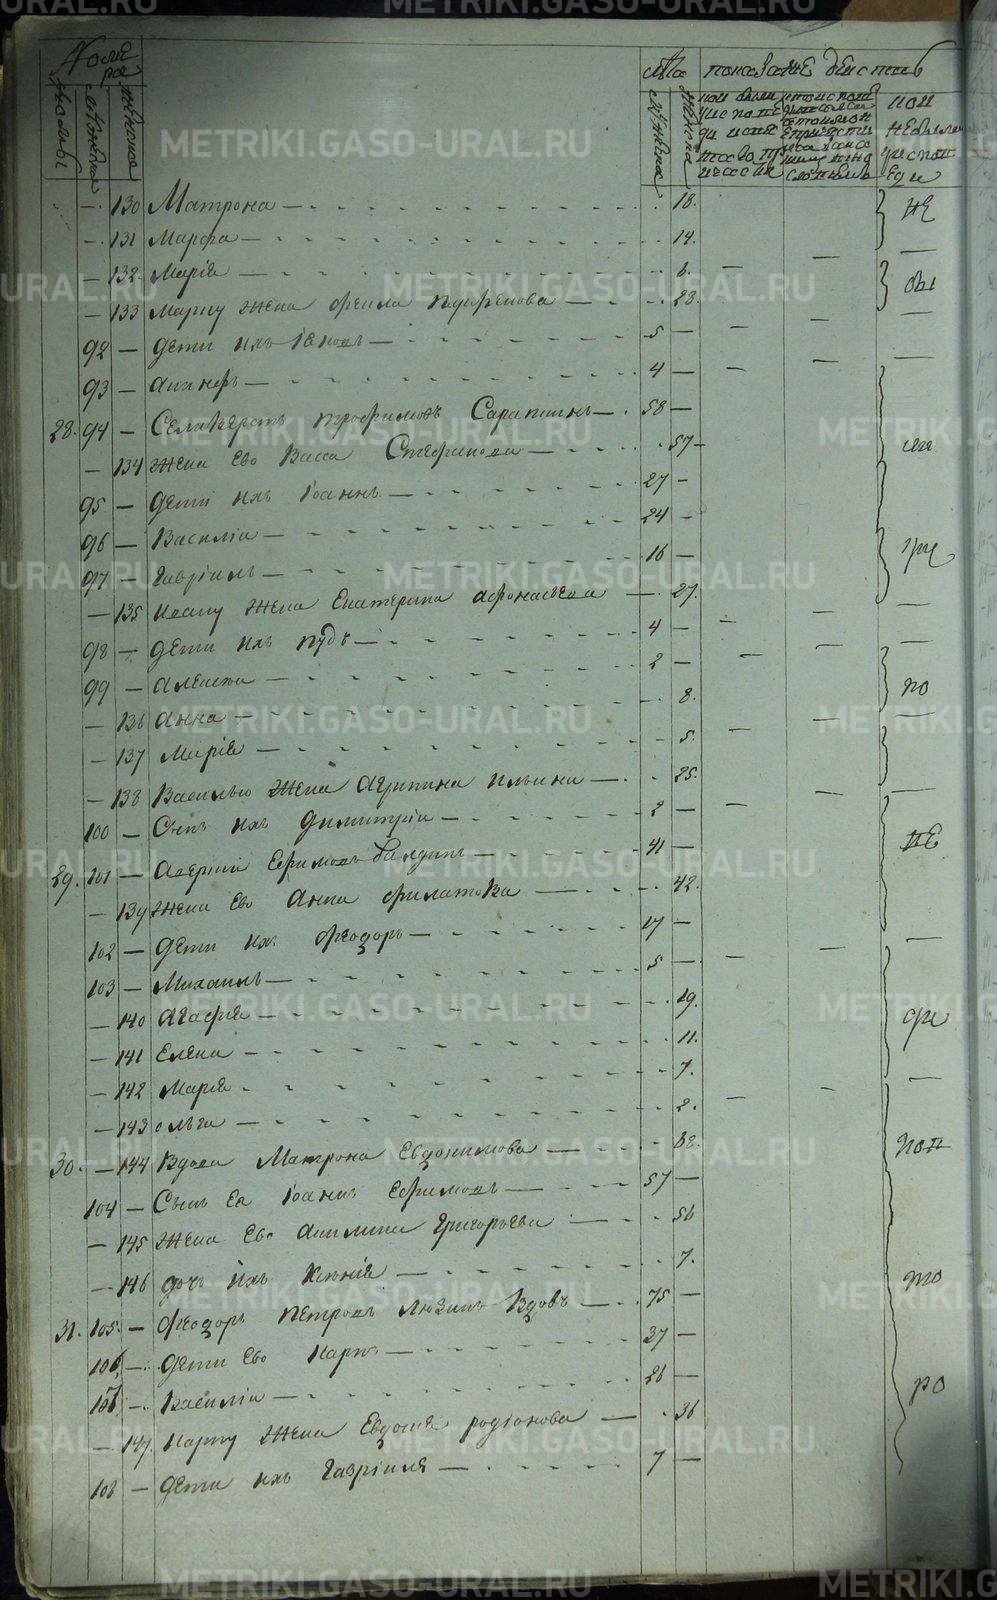 Номера
лѣта
показание действъ
домовъ
мужска
женска
мужска
женска
130 Матрона 18.
131 Марфа 14.
132 Марія 6.
133 Марку жена Фекла Парфенова 28.
92 дети ихъ Іаковъ 5
93 4
28. 94 Селиверстъ Трофимовъ Сарапинъ 58
134 жена ево Васса Стефанова 57
95 дети ихъ Іоаннъ 27
96 Василіи 24
97 Гавріилъ 16
135 Ивану жена Екатерина Афонасьева 27.
98 дети ихъ Пудъ 4
99 Алексеи 2
136 Анна 8.
137 Марія 5.
138 Василью жена Агрипина Ильина 25.
100 Сынъ ихъ Димитріи 2
29. 101 Аверкии Ефимовъ Балдинъ 41
139 жена ево Анна Филатова 42.
102 дети ихъ Феодоръ 17
103 Михаилъ 5
140 Агафія 19.
141 Елена 11.
142 Марія 7.
143 Ольга 2.
30. 144 Вдова Матрона Евдокимова
104 Сынъ ея Іоаннъ Ефимовъ 57
145 жена ево Акилина Григорьева 56
146 дочь ихъ Ксенія 7.
31. 105 Феодоръ Петровъ Люзинъ вдовъ 75
106 дети ево Карпъ 37
107 Василіи 26
147 Карпу жена Евдокія Родіонова 36
108 дети ихъ Гавріилъ 7
METRIKI.GASO-URAL.RU